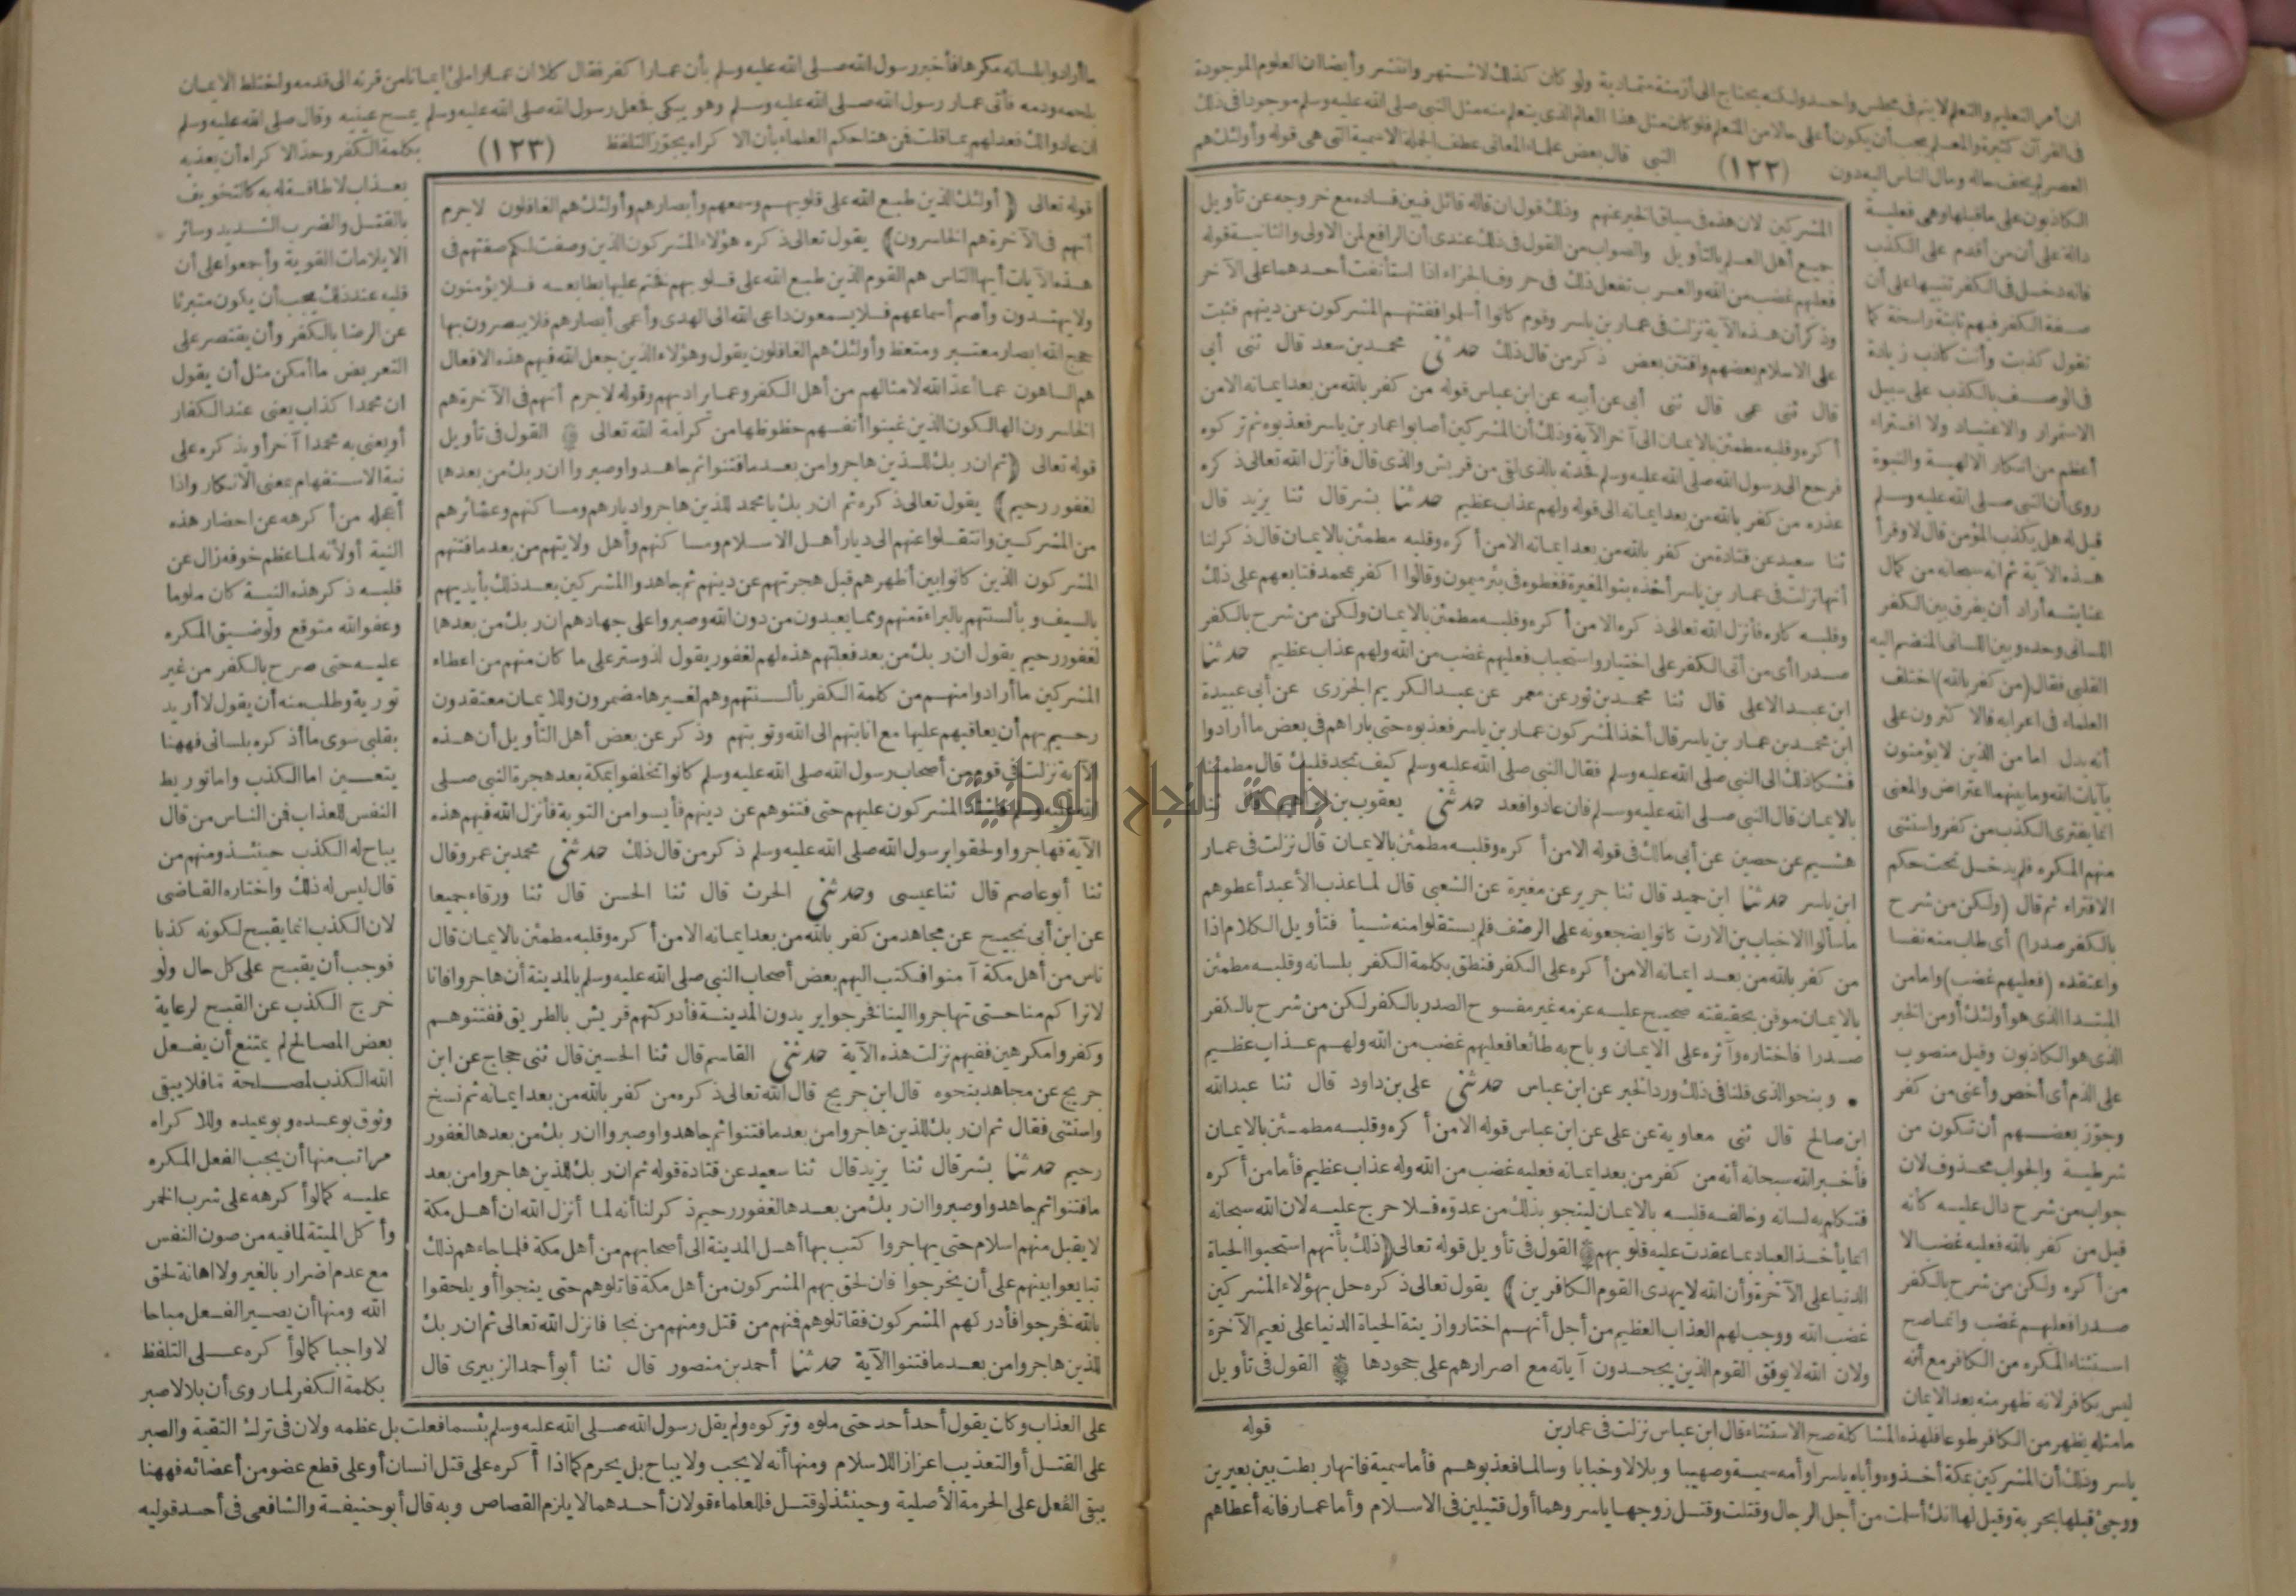 ان أمر التعليم والتعلم لا يتم فى مجلس واحد ولكنه يحتاج الى أزمنة متمادية ولو كان كذلك لاشتهر وانتشر وأيضا ان العلوم الموجودة
فى القرآن كثيرة والمعلم يجب أن يكون أعلى حالا من المتعلم فلو كان مثل هذا العالم الذى يتعلم منه مثل النبى صلى الله عليه وسلم موجودا فى ذلك
العصر لم يخف حاله ومال الناس اليه دون (١٢٢) النبى قال بعض علماء المعانى عطف الجملة الاسمية التى هى قوله وأولئك هم
الكاذبون على ما قبلها وهى فعلية
دالة على أن من أقدم على الكذب
فانه دخل فى الكفر تنبيها على أن
صفة الكفر فيهم ثابتة راسخة كما
تقول كذبت وأنت كاذب زيادة
فى الوصف بالكذب على سبيل
الاستمرار والاعتياد ولا افتراء
أعظم من انكار الالهية والنبوة
روى أن النبى صلى الله عليه وسلم
قيل له هل يكذب المؤمن قال لا وقرأ
هذه الآية ثم انه سبحانه من كمال
عنايته أراد أن يفرق بين الكفر
اللسانى وحده وبين اللسانى المنضم اليه
القلبى فقال (من كفر بالله) اختلف
العلماء فى اعرابه فالا كثرون على
أنه بدل اما من الذين لا يؤمنون
بآيات الله وما بينهما اعتراض والمعنى
انما يفترى الكذب من كفر واستثنى
منهم المكره فلم يدخل تحت حكم
الافتراء ثم قال (ولكن من شرح
بالكفر صدرا) أى طاب منه نفسا
واعتقده (فعليهم غضب) واما من
المبتدا الذى هو أولئك أو من الخبر
الذى هو الكاذبون وقيل منصوب
على الذم أى أخص وأعنى من كفر
وجوز بعضهم أن تكون من
شرطية والجواب محذوف لان
جواب من شرح دال عليه كأنه
قيل من كفر بالله فعليه غضب الا
من أكره ولكن من شرح بالكفر
صدرا فعليهم غضب وانما صح
استثناء المكره من الكافر مع أنه
ليس بكافر لانه ظهر منه بعد الايمان
المشركين لان هذه فى سياق الخبر عنهم وذلك قول ان قاله قائل فبين فساده مع خروجه عن تأويل
جميع أهل العلم بالتأويل والصواب من القول فى ذلك عندى أن الرافع لمن الاولى والثانية قوله
فعليهم غضب من الله والعرب تفعل ذلك فى حروف الجزاء اذا استأنفت أحدهما على الآخر
وذكر أن هذه الآية نزلت فى عمار بن ياسر وقوم كانوا أسلموا ففتنهم المشركون عن دينهم فثبت
على الاسلام بعضهم وافتتن بعض ذكر من قال ذلك حدثنى محمد بن سعد قال ثنى أبى
قال ثنى عمى قال ثنى أبى عن أبيه عن ابن عباس قوله من كفر بالله من بعد ايمانه الا من
أكره وقلبه مطمئن بالايمان الى آخر الآية وذلك أن المشركين أصابوا عمار بن ياسر فعذبوه ثم تركوه
فرجع الى رسول الله صلى الله عليه وسلم فحدثه بالذى لقى من قريش والذى قال فأنزل الله تعالى ذكره
عذره من كفر بالله من بعد ايمانه الى قوله ولهم عذاب عظيم حدثنا بشر قال ثنا يزيد قال
ثنا سعيد عن قتادة من كفر بالله من بعد ايمانه الا من أكره وقلبه مطمئن بالايمان قال ذكر لنا
أنها نزلت فى عمار بن ياسر أخذه بنو المغيرة فغطوه فى بئر ميمون وقالوا اكفر بمحمد فتابعهم على ذلك
وقلبه كاره فأنزل الله تعالى ذكره الا من أكره وقلبه مطمئن بالايمان ولكن من شرح بالكفر
صدرا أى من أتى الكفر على اختيار واستحباب فعليهم غضب من الله ولهم عذاب عظيم حدثنا
ابن عبد الاعلى قال ثنا محمد بن ثور عن معمر عن عبد الكريم الجزرى عن أبى عبيدة
ابن محمد بن عمار بن ياسر قال أخذ المشركون عمار بن ياسر فعذبوه حتى باراهم فى بعض ما أرادوا
فشكا ذلك الى النبى صلى الله عليه وسلم فقال النبى صلى الله عليه وسلم كيف تجد قلبك قال مطمئنا
بالايمان قال النبى صلى الله عليه وسلم فان عادوا فعد حدثنى يعقوب بن قال ثنا
هشيم عن حصين عن أبى مالك فى قوله الا من أكره وقلبه مطمئن بالايمان قال نزلت فى عمار
ابن ياسر حدثنا ابن حميد قال ثنا جرير عن مغيرة عن الشعبى قال لما عذب الأعبد أعطوهم
ما سألوا الا خباب بن الارت كانوا يضجعونه على الرضف فلم يستقلوا منه شيأ فتأويل الكلام اذا
من كفر بالله من بعد ايمانه الا من أكره على الكفر فنطق بكلمة الكفر بلسانه وقلبه مطمئن
بالايمان موقن بحقيقته صحيح عليه عزمه غير مفسوح الصدر بالكفر لكن من شرح بالكفر
صدرا فاختاره وآثره على الايمان وباح به طائعا فعليهم غضب من الله ولهم عذاب عظيم
• وبنحو الذى قلنا فى ذلك ورد الخبر عن ابن عباس حدثنى على بن داود قال ثنا عبد الله
ابن صالح قال ثنى معاوية عن على عن ابن عباس قوله الا من أكره وقلبه مطمئن بالايمان
فأخبر الله سبحانه أنه من كفر من بعد ايمانه فعليه غضب من الله وله عذاب عظيم فأما من أكره
فتكلم به لسانه وخالفه قلبه بالايمان لينجو بذلك من عدوه فلا حرج عليه لان الله سبحانه
انما يأخذ العباد بما عقدت عليه قلوبهم القول فى تأويل قوله تعالى (ذلك بأنهم استحبوا الحياة
الدنيا على الآخرة وأن الله لا يهدى القوم الكافرين) يقول تعالى ذكره حل بهؤلاء المشركين
غضب الله ووجب لهم العذاب العظيم من أجل أنهم اختاروا زينة الحياة الدنيا على نعيم الآخرة
ولان الله لا يوفق القوم الذين يجحدون آياته مع اصرارهم على جحودها القول فى تأويل
قوله
ما مثله يظهر من الكافر طوعا فلهذه المشاكلة صح الاستثناء قال ابن عباس نزلت فى عمار بن
ياسر وذلك أن المشركين بمكة أخذوه وأباه ياسرا وأمه سمية وصهيبا وبلالا وخبابا وسالما فعذبوهم فأما سمية فانها ربطت بين بعيرين
ووجئ قبلها بحربة وقيل لها انك أسلمت من أجل الرجال وقتلت وقتل زوجها ياسر وهما أول قتيلين فى الاسلام وأما عمار فانه أعطاهم
ما أرادوا بلسانه مكرها فأخبر رسول الله صلى الله عليه وسلم بأن عمارا كفر فقال كلا ان عمارا ملئ ايمانا من قرنه الى قدمه واختلط الايمان
بلحمه ودمه فأتى عمار رسول الله صلى الله عليه وسلم وهو يبكى فجعل رسول الله صلى الله عليه وسلم يمسح عينيه وقال صلى الله عليه وسلم
ان عادوا لك فعد لهم بما قلت فمن هنا حكم العلماء بأن الاكراه يجوز التلفظ (١٢٣) بكلمة الكفر وحد الاكراه أن يعذبه
قوله تعالى (أولئك الذين طبع الله على قلوبهم وسمعهم وأبصارهم وأولئك هم الغافلون لا جرم
أنهم فى الآخرة هم الخاسرون) يقول تعالى ذكره هؤلاء المشركون الذين وصفت لكم صفتهم فى
هذه الآيات أيها الناس هم القوم الذين طبع الله على قلوبهم فختم عليها بطابعه فلا يؤمنون
ولا يهتدون وأصم أسماعهم فلا يسمعون داعى الله الى الهدى وأعمى أبصارهم فلا يبصرون بها
حجج الله ابصار معتبر ومتعظ وأولئك هم الغافلون يقول وهؤلاء الذين جعل الله فيهم هذه الافعال
هم الساهون عما أعد الله لامثالهم من أهل الكفر وعما يراد بهم وقوله لا جرم أنهم فى الآخرة هم
الخاسرون الهالكون الذين غبنوا أنفسهم حظوظها من كرامة الله تعالى القول فى تأويل
قوله تعالى (ثم ان ربك للذين هاجروا من بعد ما فتنوا ثم جاهدوا وصبروا ان ربك من بعدها
لغفور رحيم) يقول تعالى ذكره ثم ان ربك يا محمد للذين هاجروا ديارهم ومساكنهم وعشائرهم
من المشركين وانتقلوا عنهم الى ديار أهل الاسلام ومساكنهم وأهل ولايتهم من بعد ما فتنهم
المشركون الذين كانوا بين أظهرهم قبل هجرتهم عن دينهم ثم جاهدوا المشركين بعد ذلك بأيديهم
بالسيف وبألسنتهم بالبراءة منهم ومما يعبدون من دون الله وصبروا على جهادهم ان ربك من بعدها
لغفور رحيم يقول ان ربك من بعد فعلتهم هذه لهم لغفور يقول لذو ستر على ما كان منهم من اعطاء
المشركين ما أرادوا منهم من كلمة الكفر بألسنتهم وهم لغيرها مضمرون وللايمان معتقدون
رحيم بهم أن يعاقبهم عليها مع انابتهم الى الله وتوبتهم وذكر عن بعض أهل التأويل أن هذه
الآية نزلت فى قوم من أصحاب رسول الله صلى الله عليه وسلم كانوا تخلفوا بمكة بعد هجرة النبى صلى
الله عليه وسلم فاشتد المشركون عليهم حتى فتنوهم عن دينهم فأيسوا من التوبة فأنزل الله فيهم هذه
الآية فهاجروا ولحقوا برسول الله صلى الله عليه وسلم ذكر من قال ذلك حدثنى محمد بن عمرو قال
ثنا أبو عاصم قال ثنا عيسى وحدثنى الحرث قال ثنا الحسن قال ثنا ورقاء جميعا
عن ابن أبى نجيح عن مجاهد من كفر بالله من بعد ايمانه الا من أكره وقلبه مطمئن بالايمان قال
ناس من أهل مكة آمنوا فكتب اليهم بعض أصحاب النبى صلى الله عليه وسلم بالمدينة أن هاجروا فانا
لا نراكم منا حتى تهاجروا الينا فخرجوا يريدون المدينة فأدركتهم قريش بالطريق ففتنوهم
وكفروا مكرهين ففيهم نزلت هذه الآية حدثنى القاسم قال ثنا الحسين قال ثنى حجاج عن ابن
جريج عن مجاهد بنحوه قال ابن جريج قال الله تعالى ذكره من كفر بالله من بعد ايمانه ثم نسخ
واستثنى فقال ثم ان ربك للذين هاجروا من بعد ما فتنوا ثم جاهدوا وصبروا ان ربك من بعدها لغفور
رحيم حدثنا بشر قال ثنا يزيد قال ثنا سعيد عن قتادة قوله ثم ان ربك للذين هاجروا من بعد
ما فتنوا ثم جاهدوا وصبروا ان ربك من بعدها لغفور رحيم ذكر لنا أنه لما أنزل الله ان أهل مكة
لا يقبل منهم اسلام حتى يهاجروا كتب بها أهل المدينة الى أصحابهم من أهل مكة فلما جاءهم ذلك
تبايعوا بينهم على أن يخرجوا فان لحق بهم المشركون من أهل مكة قاتلوهم حتى ينجوا أو يلحقوا
بالله فخرجوا فأدركهم المشركون فقاتلوهم فمنهم من قتل ومنهم من نجا فأنزل الله تعالى ثم ان ربك
للذين هاجروا من بعد ما فتنوا الآية حدثنا أحمد بن منصور قال ثنا أبو أحمد الزبيرى قال
بعذاب لا طاقة له به كالتخويف
بالقتل والضرب الشديد وسائر
الايلامات القوية وأجمعوا على أن
قلبه عند ذلك يجب أن يكون متبرئا
عن الرضا بالكفر وأن يقتصر على
التعريض ما أمكن مثل أن يقول
ان محمدا كذاب يعنى عند الكفار
أو يعنى به محمدا آخر أو يذكره على
نية الاستفهام بمعنى الانكار واذا
أعجله من أكرهه عن احضار هذه
النية أو لانه لما عظم خوفه زال عن
قلبه ذكر هذه النية كان ملوما
وعفو الله متوقع ولو ضيق المكره
عليه حتى صرح بالكفر من غير
تورية وطلب منه أن يقول لا أريد
بقلبى سوى ما أذكره بلسانى فههنا
يتعين اما الكذب واما توريط
النفس للعذاب فمن الناس من قال
يباح له الكذب حينئذ ومنهم من
قال ليس له ذلك واختاره القاضى
لان الكذب انما يقبح لكونه كذبا
فوجب أن يقبح على كل حال ولو
خرج الكذب عن القبح لرعاية
بعض المصالح لم يمتنع أن يفعل
الله الكذب لمصلحة ما فلا يبقى
وثوق بوعده وبوعيده وللاكراه
مراتب منها أن يجب الفعل المكره
عليه كما لو أكرهه على شرب الخمر
وأكل الميتة لما فيه من صون النفس
مع عدم اضرار بالغير ولا اهانة لحق
الله ومنها أن يصير الفعل مباحا
لا واجبا كما لو أكره على التلفظ
بكلمة الكفر لما روى أن بلالا صبر
على العذاب وكان يقول أحد أحد حتى ملوه وتركوه ولم يقل رسول الله صلى الله عليه وسلم بئسما فعلت بل عظمه ولان فى ترك التقية والصبر
على القتل أو التعذيب اعزازا للاسلام ومنها أنه لا يجب ولا يباح بل يحرم كما اذا أكره على قتل انسان أو على قطع عضو من أعضائه فههنا
يبقى الفعل على الحرمة الأصلية وحينئذ لو قتل فللعلماء قولان أحدهما لا يلزم القصاص وبه قال أبو حنيفة والشافعى فى أحد قوليه
جامعة النجاح الوطنية